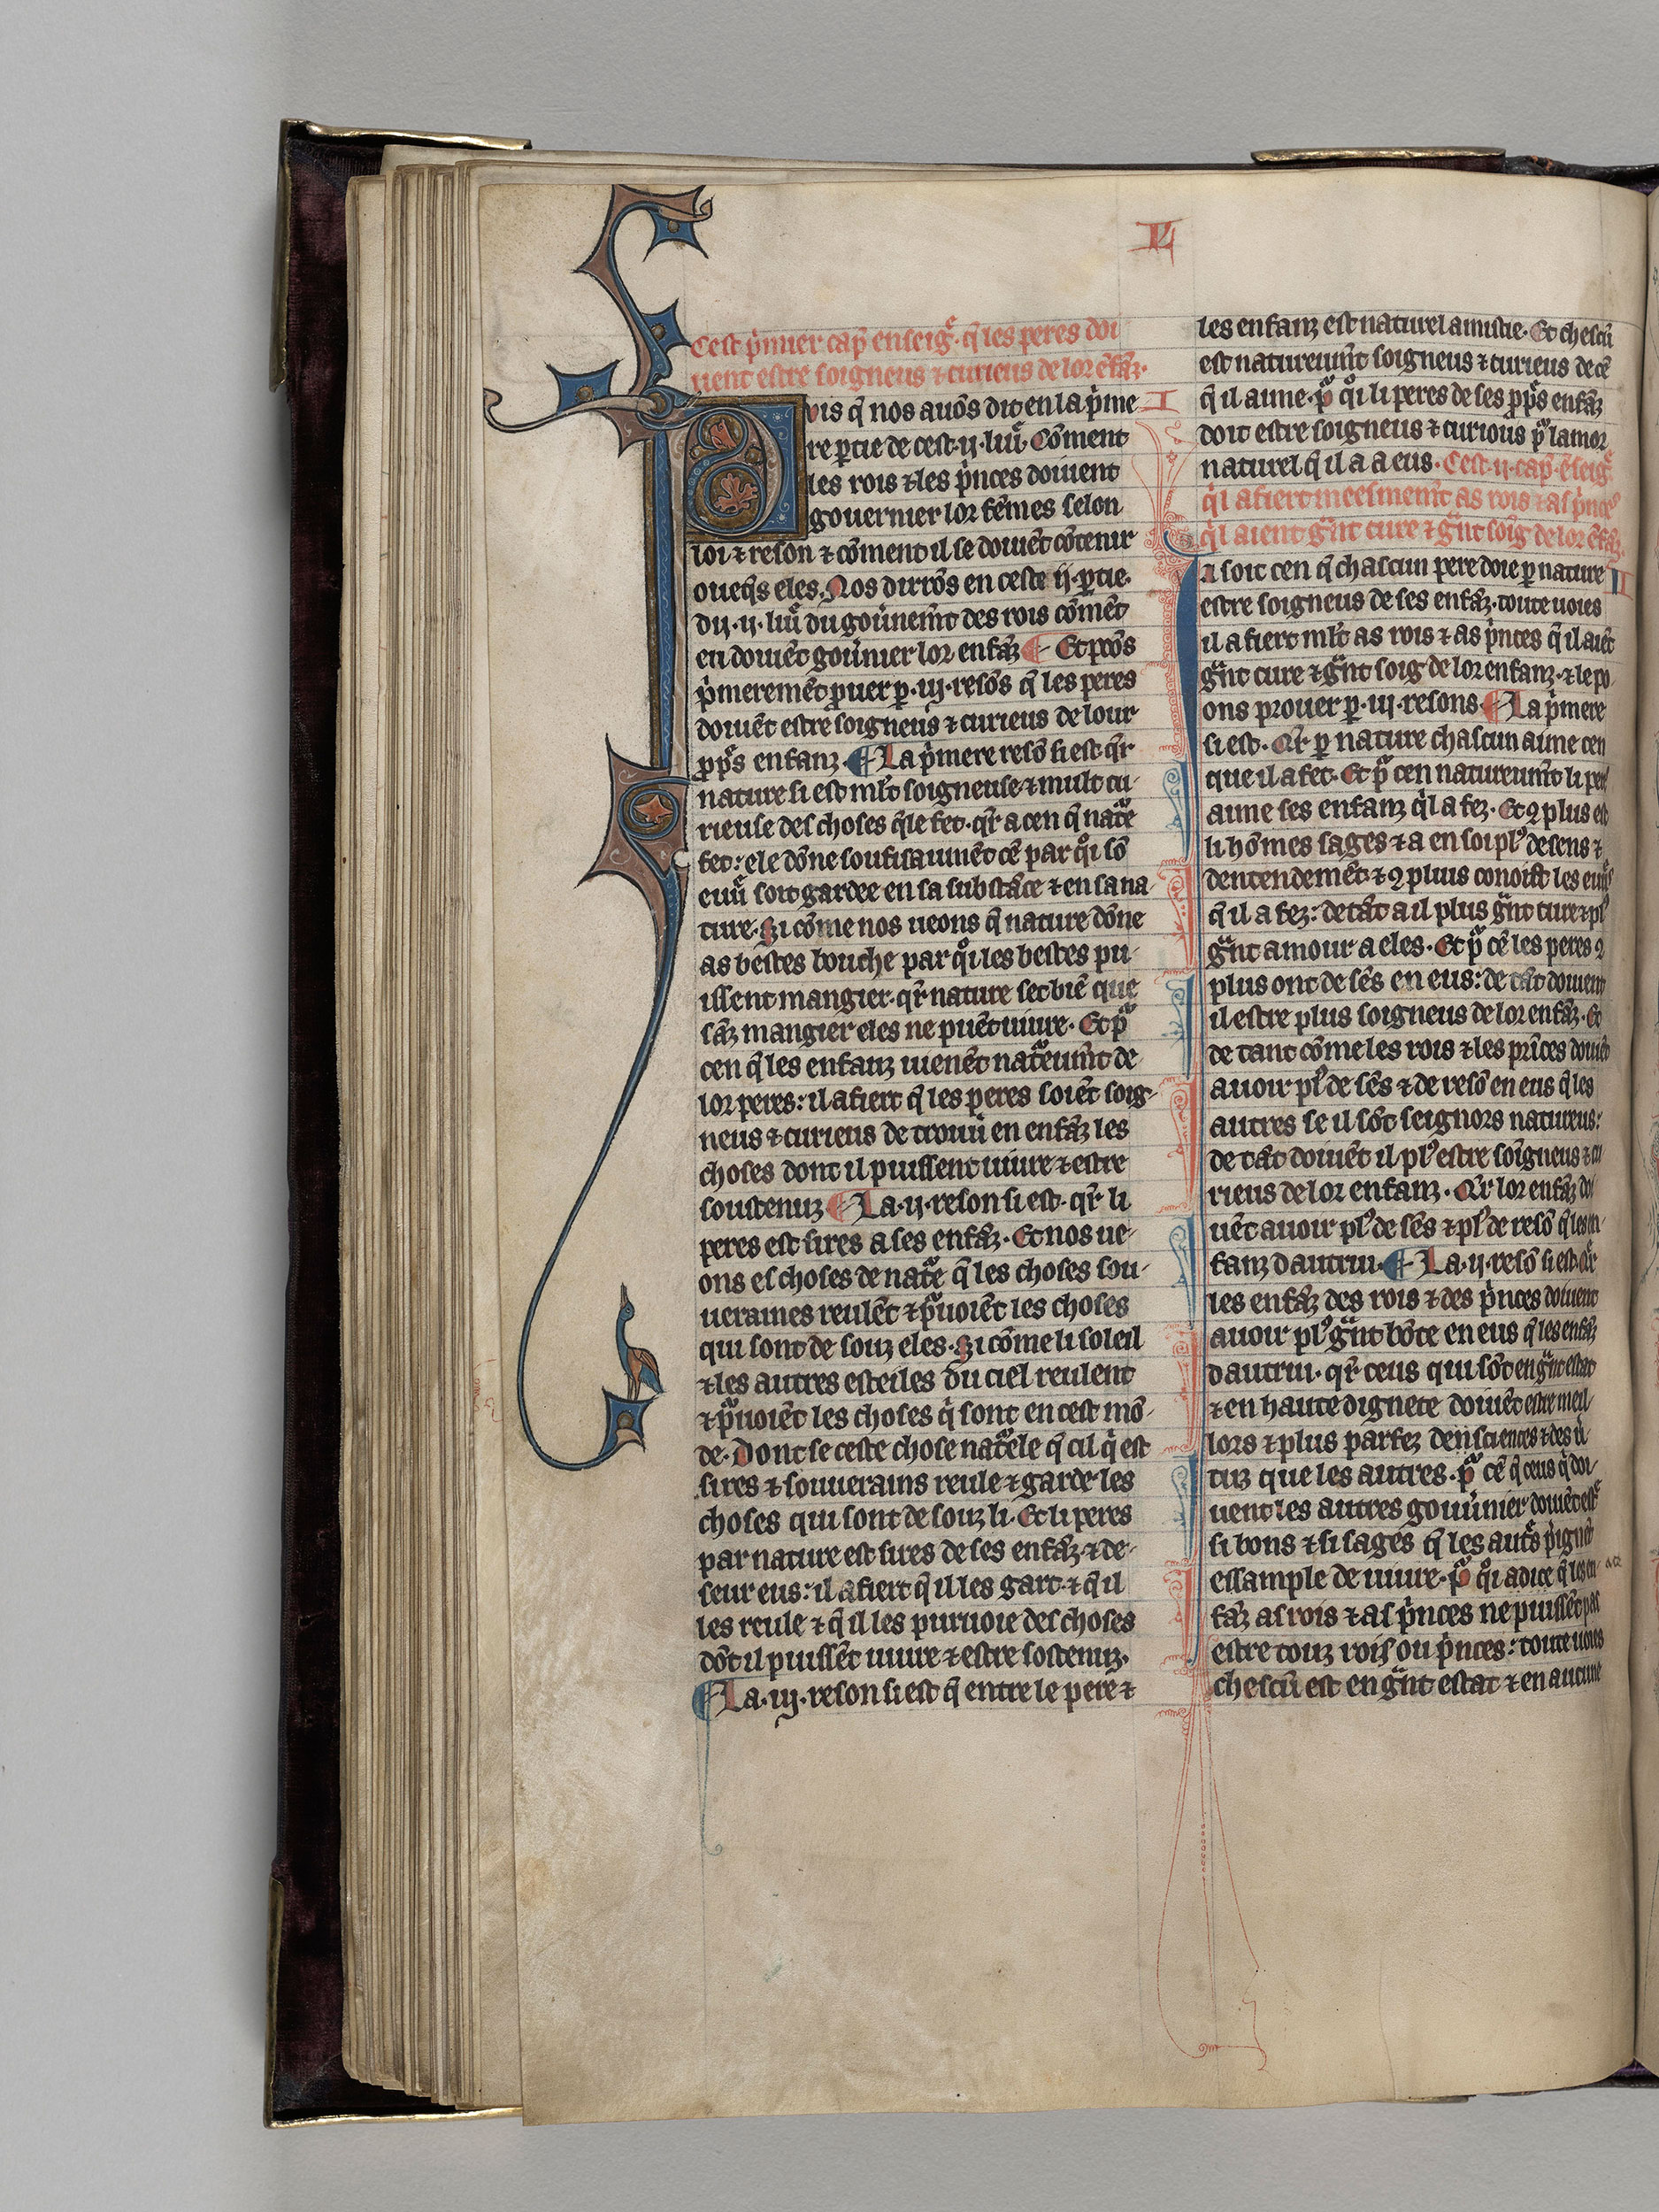 L
Cest p̾mier cap̾ enseig͛. q̄ les peres doi
uent estre soigneus ⁊ curieus de lor ēfāz.
Puis q̄ nos auōs dit en la p̾me
re ꝑtie de cest .ij. liu͛. Cōment
les rois ⁊ les p̾nces doiuent
gouerner lor fēmes selon
loi ⁊ reson ⁊ cōment il se doiuēt cōtenir
oueq̄s eles. Nos dirrōs en ceste ij. ꝑtie.
du .ij. liu͛ du gou͛nem̄t des rois cōmēt
en doiuēt gou͛nier lor enfāz ¶ Et poōs
p̾meremēt ꝓuer ꝑ .iij. resōs q̄ les peres
doiuēt estre soigneus ⁊ curieus de lour
ꝓp̄s enfanz. ¶ La p̾mere resō si est. q̄r
nature si est ml̄t soigneuse ⁊ mult cu-
rieuse des choses q̄le fet. q̄r a cen q̄ natᵃe
fet: ele dōne soufisaumēt cē par qͦi sō
euu͛ soit gardee en sa substāce ⁊ en sa na-
ture. Si cōme nos ueons q̄ nature dōne
as bestes bouche par qͦi les bestes pu-
issent mangier. q̄r nature set biē que
sāz mangier eles ne puēt uiure. Et pᵃ
cen q̄ les enfanz uienēt natᵃeum̄t de
lor peres: il afiert q̄ les peres soiēt soig-
neus ⁊ curieus de trouu͛ en enfāz les
choses dont il puissent uiure ⁊ estre
soustenuz ¶ La .ij. reson si est. q̄r li
peres est sires a ses enfāz. Et nos ue-
ons es choses de natᵃe q̄ les choses sou-
ueraines reulēt ⁊ pᵃuoiēt les choses
qui sont de souz eles. Si cōme li soleil
⁊ les autres esteiles du ciel reulent
⁊ pᵃuoiēt les choses q̾ sont en cest mō-
de. Dont se ceste chose natᵃele q̄ cil q̾ est
sires ⁊ souuerains reule ⁊ garde les
choses qui sont de souz li. Et li peres
par nature est sires de ses enfāz ⁊ de-
seur eus: il afiert q̄ il les gart ⁊ q̄ il
les reule ⁊ q̄ il les puruoie des choses
dōt il puissēt uiure ⁊ estre sostenuz.
¶ La .iij. reson si est q̄ entre le pere ⁊
I
les enfanz est naturel amistie. Et chescū
est natureum̄t soigneus ⁊ curieus de cē
q̄ il aime. pᵃ qͦi li peres de ses ꝓp̄s enfāz
doit estre soigneus ⁊ curious pᵃ lamor
naturel q̄ il a a eus. Cest .ij. cap̾. ēseig͛
q̾l afiert meesmem̄t as rois ⁊ as p̾nces
q̾l aient gᵃnt cure ⁊ gᵃnt soig de lor ēfāz.
II
Ia soit cen q̄ chascun pere doie ꝑ nature
estre soigneus de ses enfāz. toute uoies
il afiert ml̄t as rois ⁊ as p̾nces q̄ il aiēt
gᵃnt cure ⁊ gᵃnt soig de lor enfanz. ⁊ le po-
ons prouer ꝑ .iij. resons. ¶ La p̾mere
si est. Q̄r ꝑ nature chascun aime cen
que il a fet. Et pᵃ cen natureum̄t li pere
aime ses enfanz q̾l a fez. Et ꝯ plus est
li hōmes sages ⁊ a en soi plꝰ de sens ⁊
dentendemēt ⁊ ꝯ pluis conoist les euu͛s
q̄ il a fez: de tāt a il plus gᵃnt cure ⁊ plꝰ
gᵃnt amour a eles. Et pᵃ cē les peres ꝯ
plus ont de sēs en eus: de tāt doiuent
il estre plus soigneus de lor enfāz. Et
de tant cōme les rois ⁊ les prīces doiuēt
auoir plꝰ de sēs ⁊ de resō en eus q̄ les
autres se il sōt seignors natureus:
de tāt doiuēt il plꝰ estre soīgneus ⁊ cu
rieus de lor enfanz. Q̄r lor enfāz doi
uēt auoir plꝰ de sēs ⁊ plꝰ de resō q̄ les en-
fanz dautrui. ¶ La .ij. resō si est. q̄r
les enfāz des rois ⁊ des p̾nces doiuent
auoir plꝰ gᵃnt bōte en eus q̄ les enfāz
dautrui. q̄r ceus qui sōt en gᵃnt estat
⁊ en haute dignete doiuēt estre meil-
lors ⁊ plus parfez den sciences ⁊ des u̾-
tuz que les autres. pᵃ cē q̄ ceus q̾ doi-
uent les autres gouu͛nier doiuēt est͛
si bons ⁊ si sages q̄ les aut͛s p̾gnēt
essample de uiure. pᵃ qͦi a dire q̄ les en-
fāz as rois ⁊ as p̾nces ne puissēt pas
estre touz rois ou p̾nces: toute uoies
chescū est en gᵃnt estat ⁊ en aucune